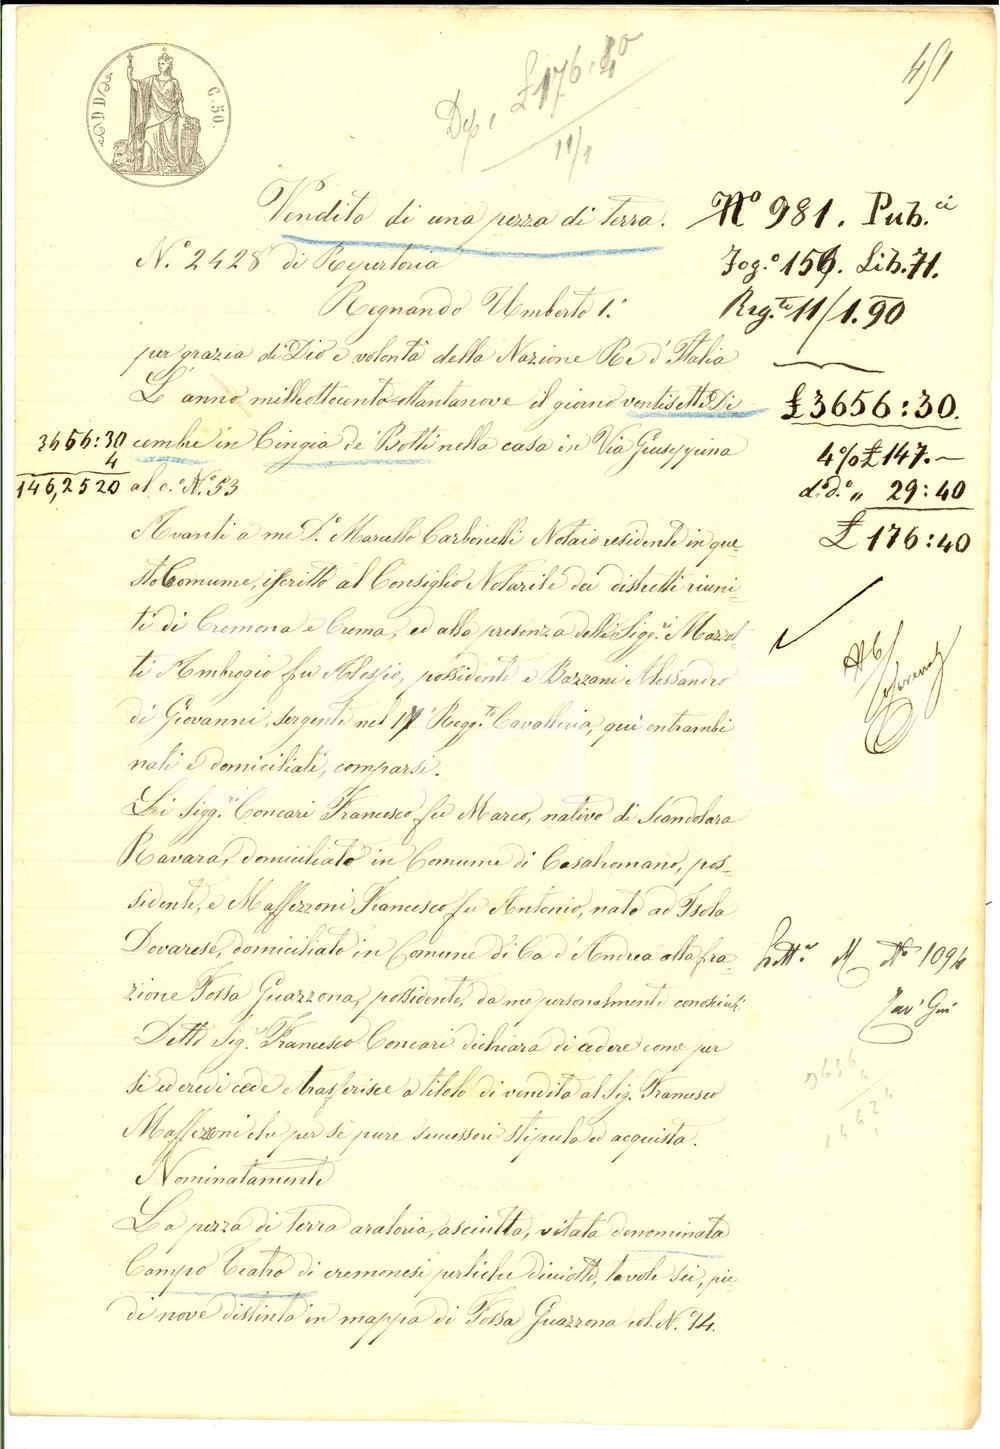 C. 50.
Dep. £ 176:40
11/1
451
Vendita di una pezza di terra.
N.° 2428 di Repertorio
Regnando Umberto 1.°
per grazia di Dio e volontà della Nazione Re d'Italia
L'anno milleottocento ottantanove il giorno ventisette Di
cembre in Cingia de' Botti nella casa in Via Giuseppina
al c.° N.° 53
Avanti a me D.r Marcello Carbonelli Notaio residente in que-
sto Comune, iscritto al Consiglio Notarile dei distretti riuni-
ti di Cremona e Crema, ed alla presenza delli Sigg.ri Mazzol-
ti Ambrogio fu Alessio, possidente e Bazzani Alessandro
di Giovanni, sergente nel 17° Regg.to Cavalleria, qui entrambi
nati e domiciliati, comparsi.
Li Sigg.ri Concari Francesco fu Marco, nativo di Scandolara
Ravara, domiciliato in Comune di Casalromano, pos-
sidente, e Maffezzoni Francesco fu Antonio, nato ad Isola
Dovarese, domiciliato in Comune di Ca d'Andrea alla fra-
zione Fossa Guazzona, possidente, da me personalmente conosciuti.
Detto Sig.r Francesco Concari dichiara di cedere come per
sè ed eredi cede e trasferisce a titolo di vendita al Sig. Francesco
Maffezzoni che per sè pure successori stipula ed acquista.
Nominatamente
La pezza di terra aratoria, asciutta, vitata denominata
Campo Teatro di cremonesi pertiche diciotto, tavole sei, pie-
di nove distinta in mappa di Fossa Guazzona col N.° 74.
3656:30
4
146,2520
N° 981. Pub.ci
Fog.° 156. Lib. 71.
Reg.to 11/1.90
£ 3656:30.
4% £ 147.—
d.° d.° „ 29:40
£ 176:40
Lett.a M N° 1094